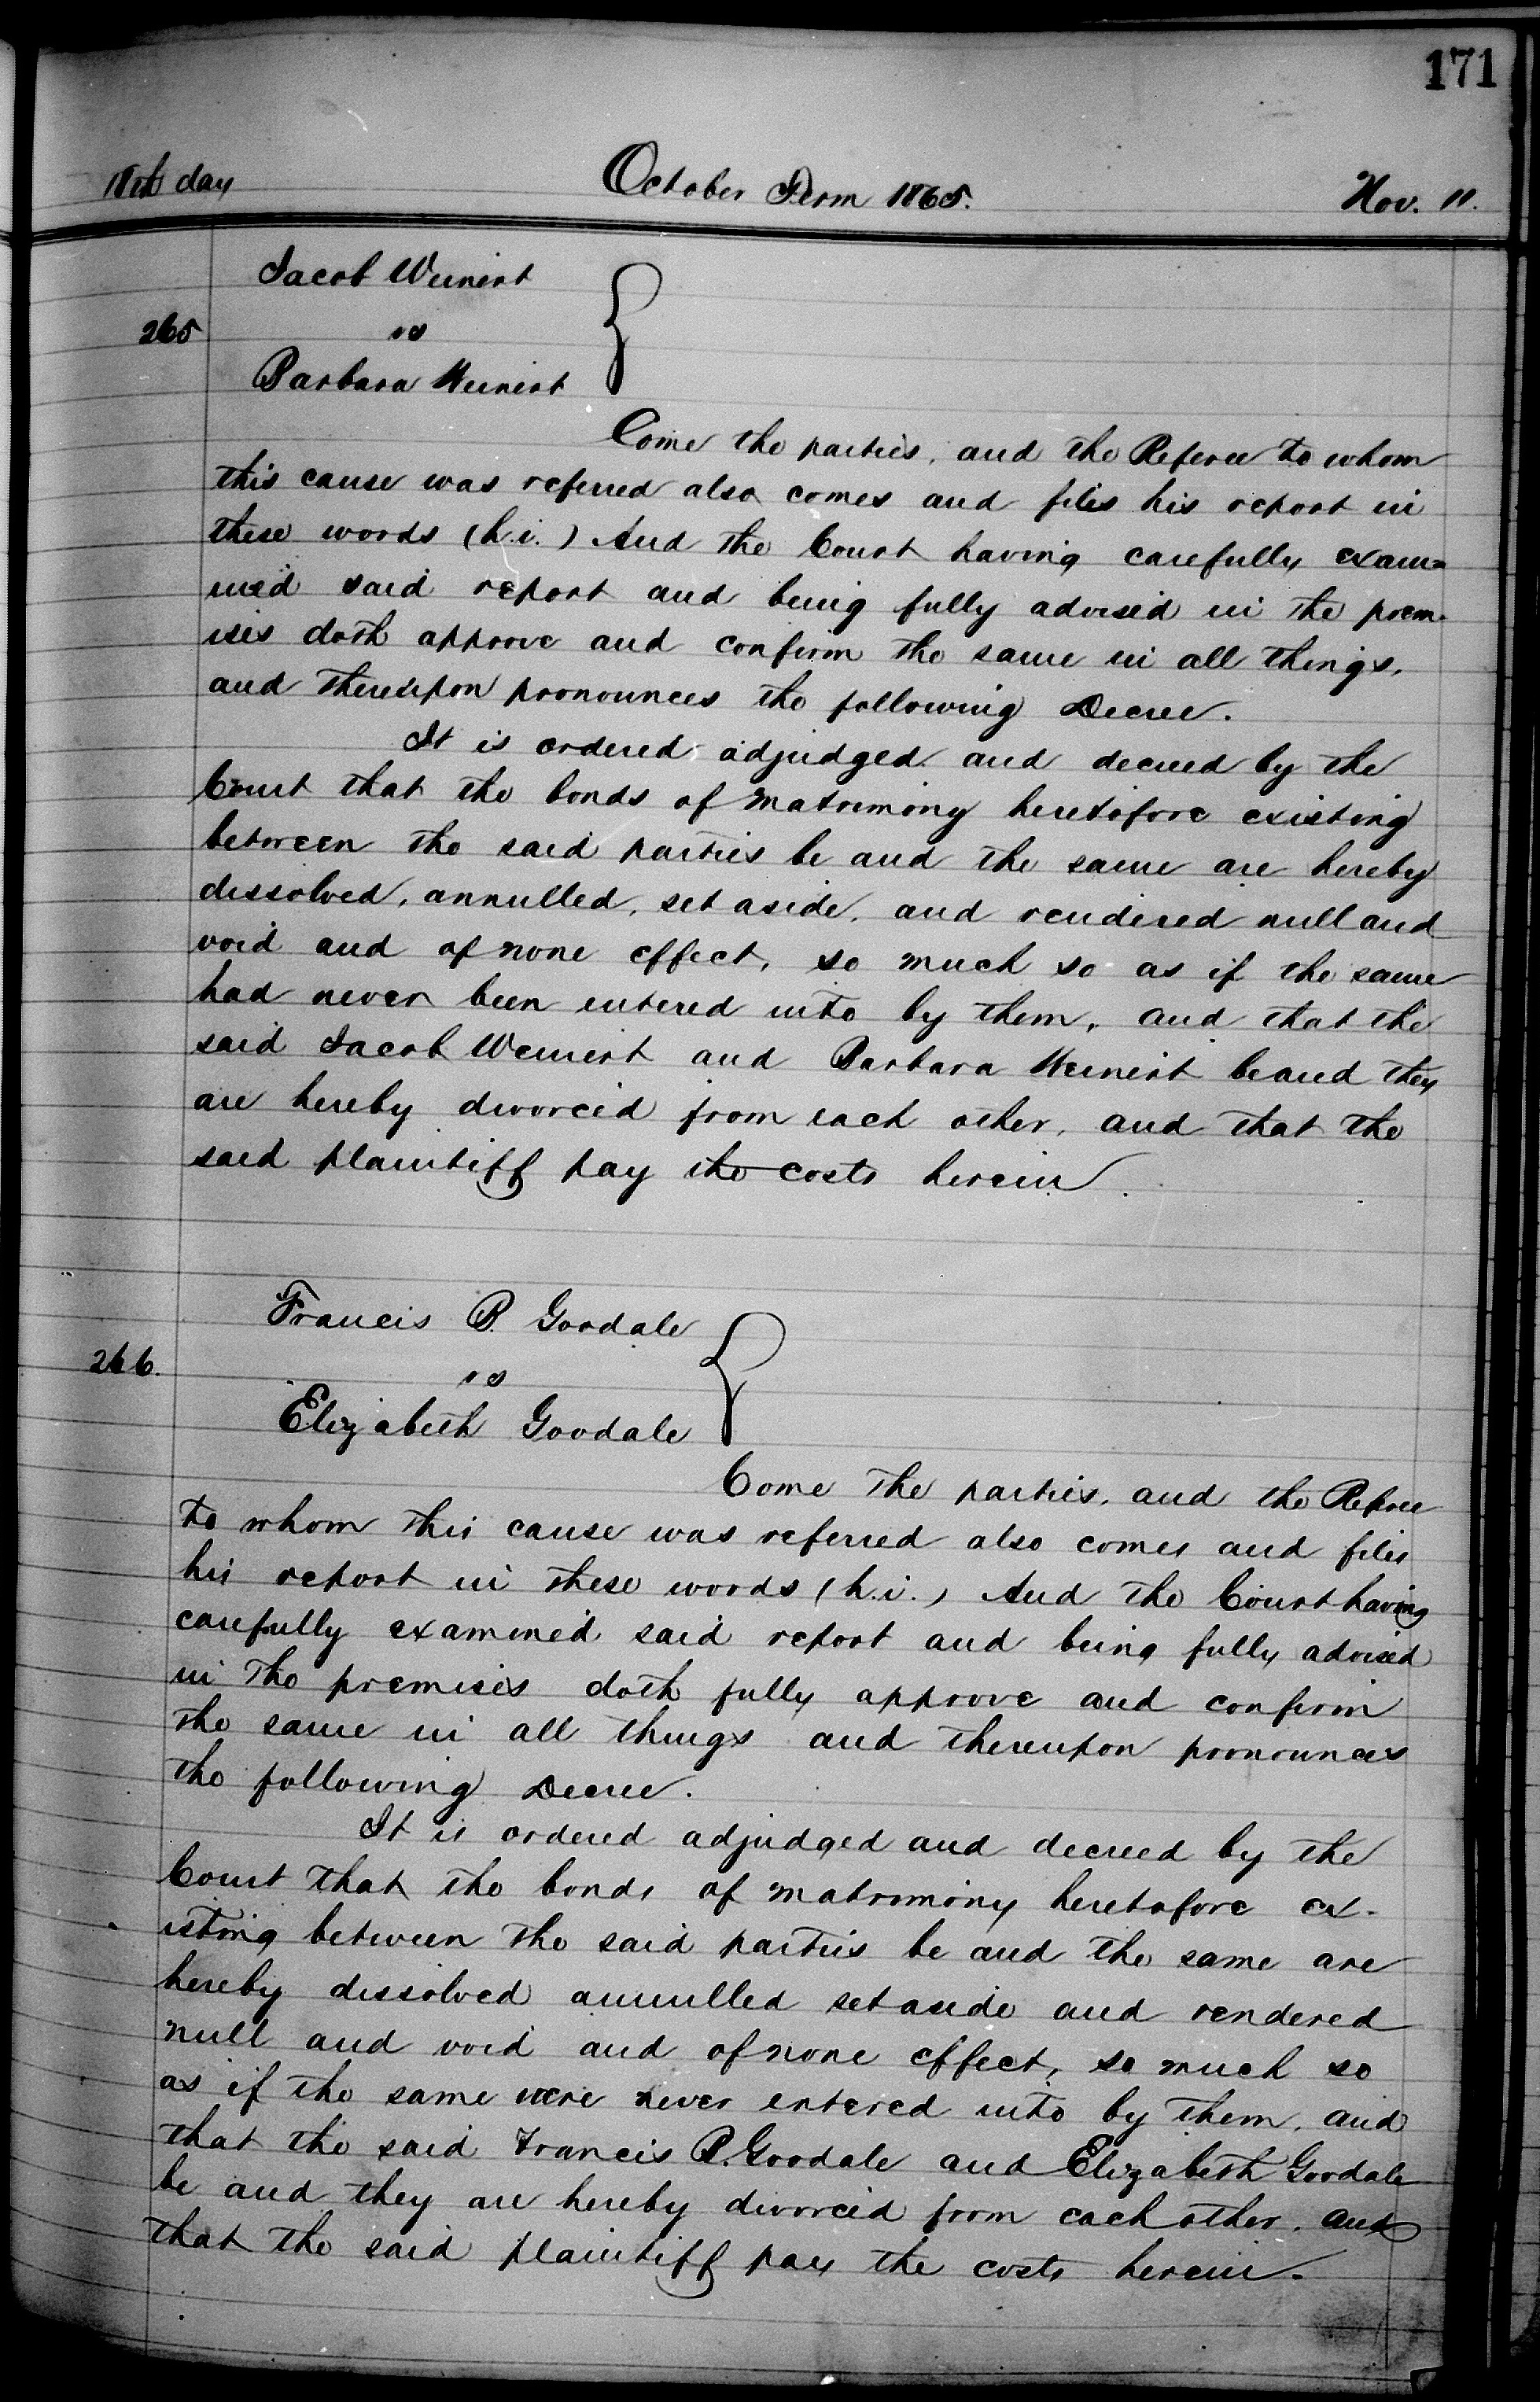 171
11th day October Term 1865. Nov. 11.
Jacob Weinert
265 vs
Barbara Weinert
Come the parties, and the Referee to whom
this cause was referred also comes and files his report in
these words (h.i.) And the Court having carefully exam=
ined said report and being fully advised in the prem-
ises doth approve and confirm the same in all things,
and thereupon pronounces the following Decree.
It is ordered adjudged and decreed by the
Court that the bonds of matrimony heretofore existing
between the said parties be and the same are hereby
dissolved, annulled, set aside, and rendered null and
void and of none effect, so much so as if the same
had never been entered into by them, and that the
said Jacob Weinert and Barbara Weinert be and they
are hereby divorced from each other, and that the
said plaintiff pay the costs herein.
Francis P. Goodale
266. vs
Elizabeth Goodale
Come the parties, and the Referee
to whom this cause was referred also comes and files
his report in these words (h.i.) And the Court having
carefully examined said report and being fully advised
in the premises doth fully approve and confirm
the same in all things and thereupon pronounces
the following Decree.
It is ordered adjudged and decreed by the
Court that the bonds of matrimony heretofore ex-
isting between the said parties be and the same are
hereby dissolved annulled set aside and rendered
null and void and of none effect, so much so
as if the same were never entered into by them, and
that the said Francis P. Goodale and Elizabeth Goodale
be and they are hereby divorced from each other, and
that the said plaintiff pay the costs herein.